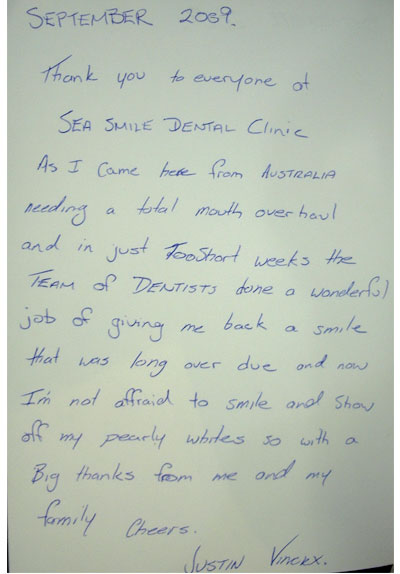 SEPTEMBER 2009.
Thank you to everyone at
SEA SMILE DENTAL Clinic
As I came here from AUSTRALIA
needing a total mouth over haul
and in just Too Short weeks the
TEAM of DENTISTS done a wonderful
job of giving me back a smile
that was long over due and now
I'm not affraid to smile and Show
off my pearly whites so with a
Big thanks from me and my
family Cheers.
JUSTIN Vinckx.